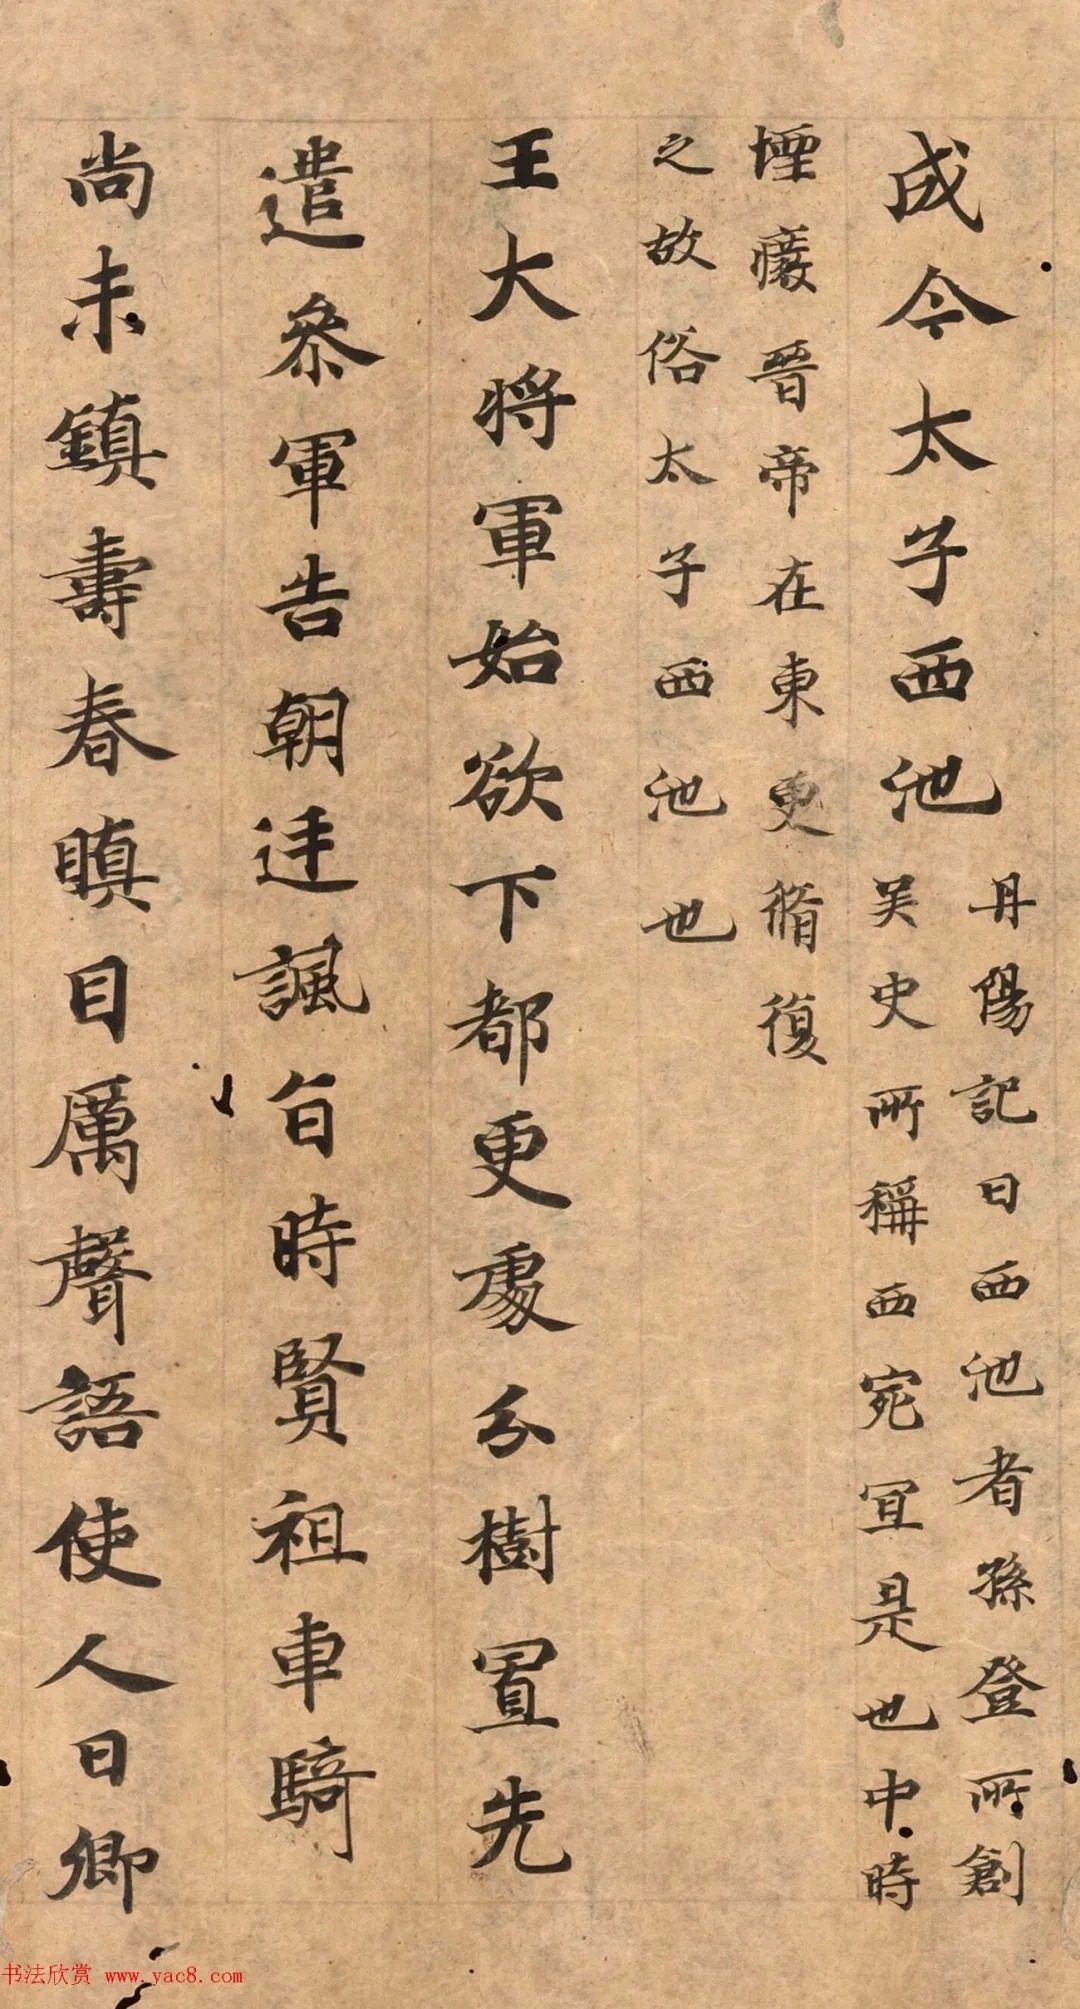 成今太子西池
丹陽記曰西池者孫登所創
吴史所稱西宛宜是也中時
堙癈晉帝在東更脩復
之故俗太子西池也
王大將軍始欲下都更處分樹置先
遣叅軍告朝廷諷旨時賢祖車騎
尚未鎮壽春瞋目厲聲語使人曰卿
书法欣赏 www.yac8.com